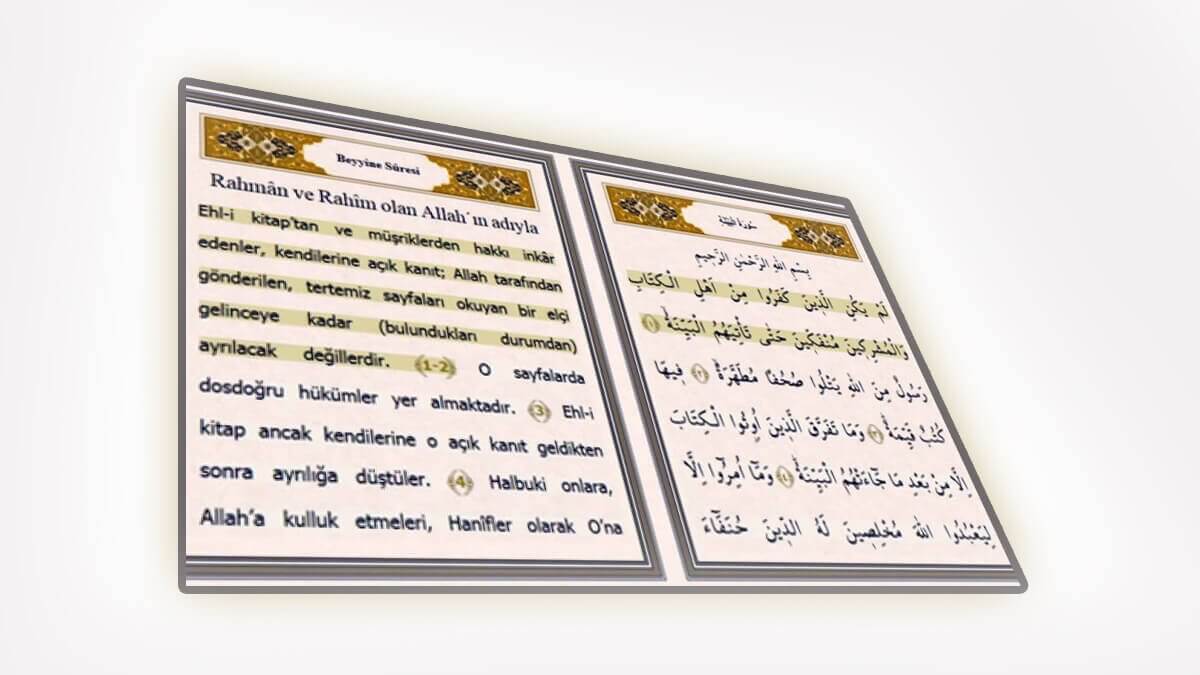 Beyyine Sûresi
Rahmân ve Rahîm olan Allah´ın adıyla
Ehl-i kitap'tan ve müşriklerden hakkı inkâr
edenler, kendilerine açık kanıt; Allah tarafından
gönderilen, tertemiz sayfaları okuyan bir elçi
gelinceye kadar (bulundukları durumdan)
ayrılacak değillerdir. (1-2) O sayfalarda
dosdoğru hükümler yer almaktadır. (3) Ehl-i
kitap ancak kendilerine o açık kanıt geldikten
sonra ayrılığa düştüler. (4) Halbuki onlara,
Allah’a kulluk etmeleri, Hanîfler olarak O’na
سُورَةُ الْبَيِّنَةِ
بِسْمِ اللّٰهِ الرَّحْمٰنِ الرَّحِيمِ
لَمْ يَكُنِ الَّذِينَ كَفَرُوا مِنْ اَهْلِ الْكِتَابِ
وَالْمُشْرِكِينَ مُنْفَكِّينَ حَتّٰى تَأْتِيَهُمُ الْبَيِّنَةُۙ ﴿١﴾
رَسُولٌ مِنَ اللّٰهِ يَتْلُوا صُحُفًا مُطَهَّرَةًۙ ﴿٢﴾ فِيهَا
كُتُبٌ قَيِّمَةٌۜ ﴿٣﴾ وَمَا تَفَرَّقَ الَّذِينَ اُوتُوا الْكِتَابَ
اِلَّا مِنْ بَعْدِ مَا جَٓاءَتْهُمُ الْبَيِّنَةُۜ ﴿٤﴾ وَمَٓا اُمِرُٓوا اِلَّا
لِيَعْبُدُوا اللّٰهَ مُخْلِصِينَ لَهُ الدِّينَ حُنَفَٓاءَ